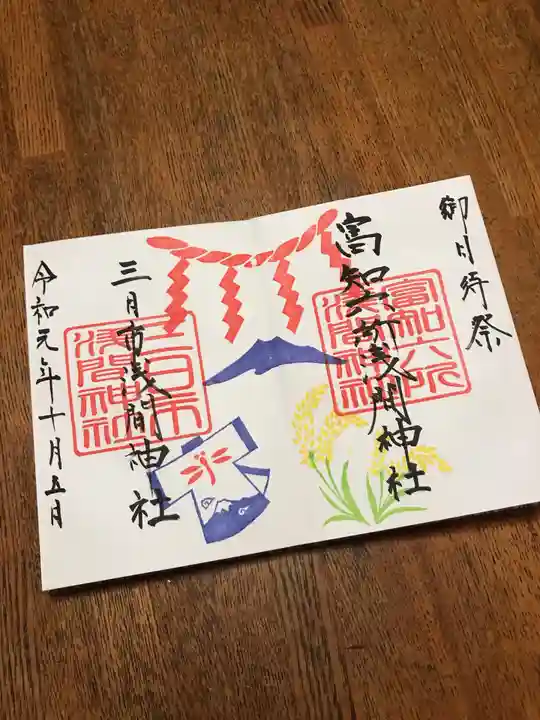 御日待祭
富知六所浅間神社
富知六所
浅間神社
三日市浅間神社
三日市
浅間神社
令和元年十月五日